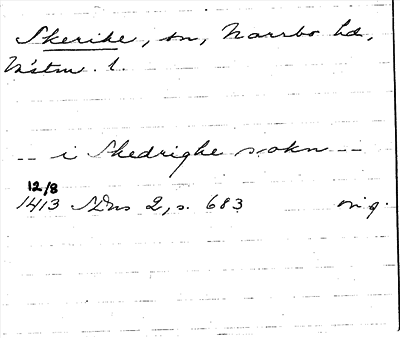 Skerike, sn, Norrbo hd,
Västm. l.
-- i Skedrighe sokn --
12/8
1413 SDns 2, s. 683 orig.